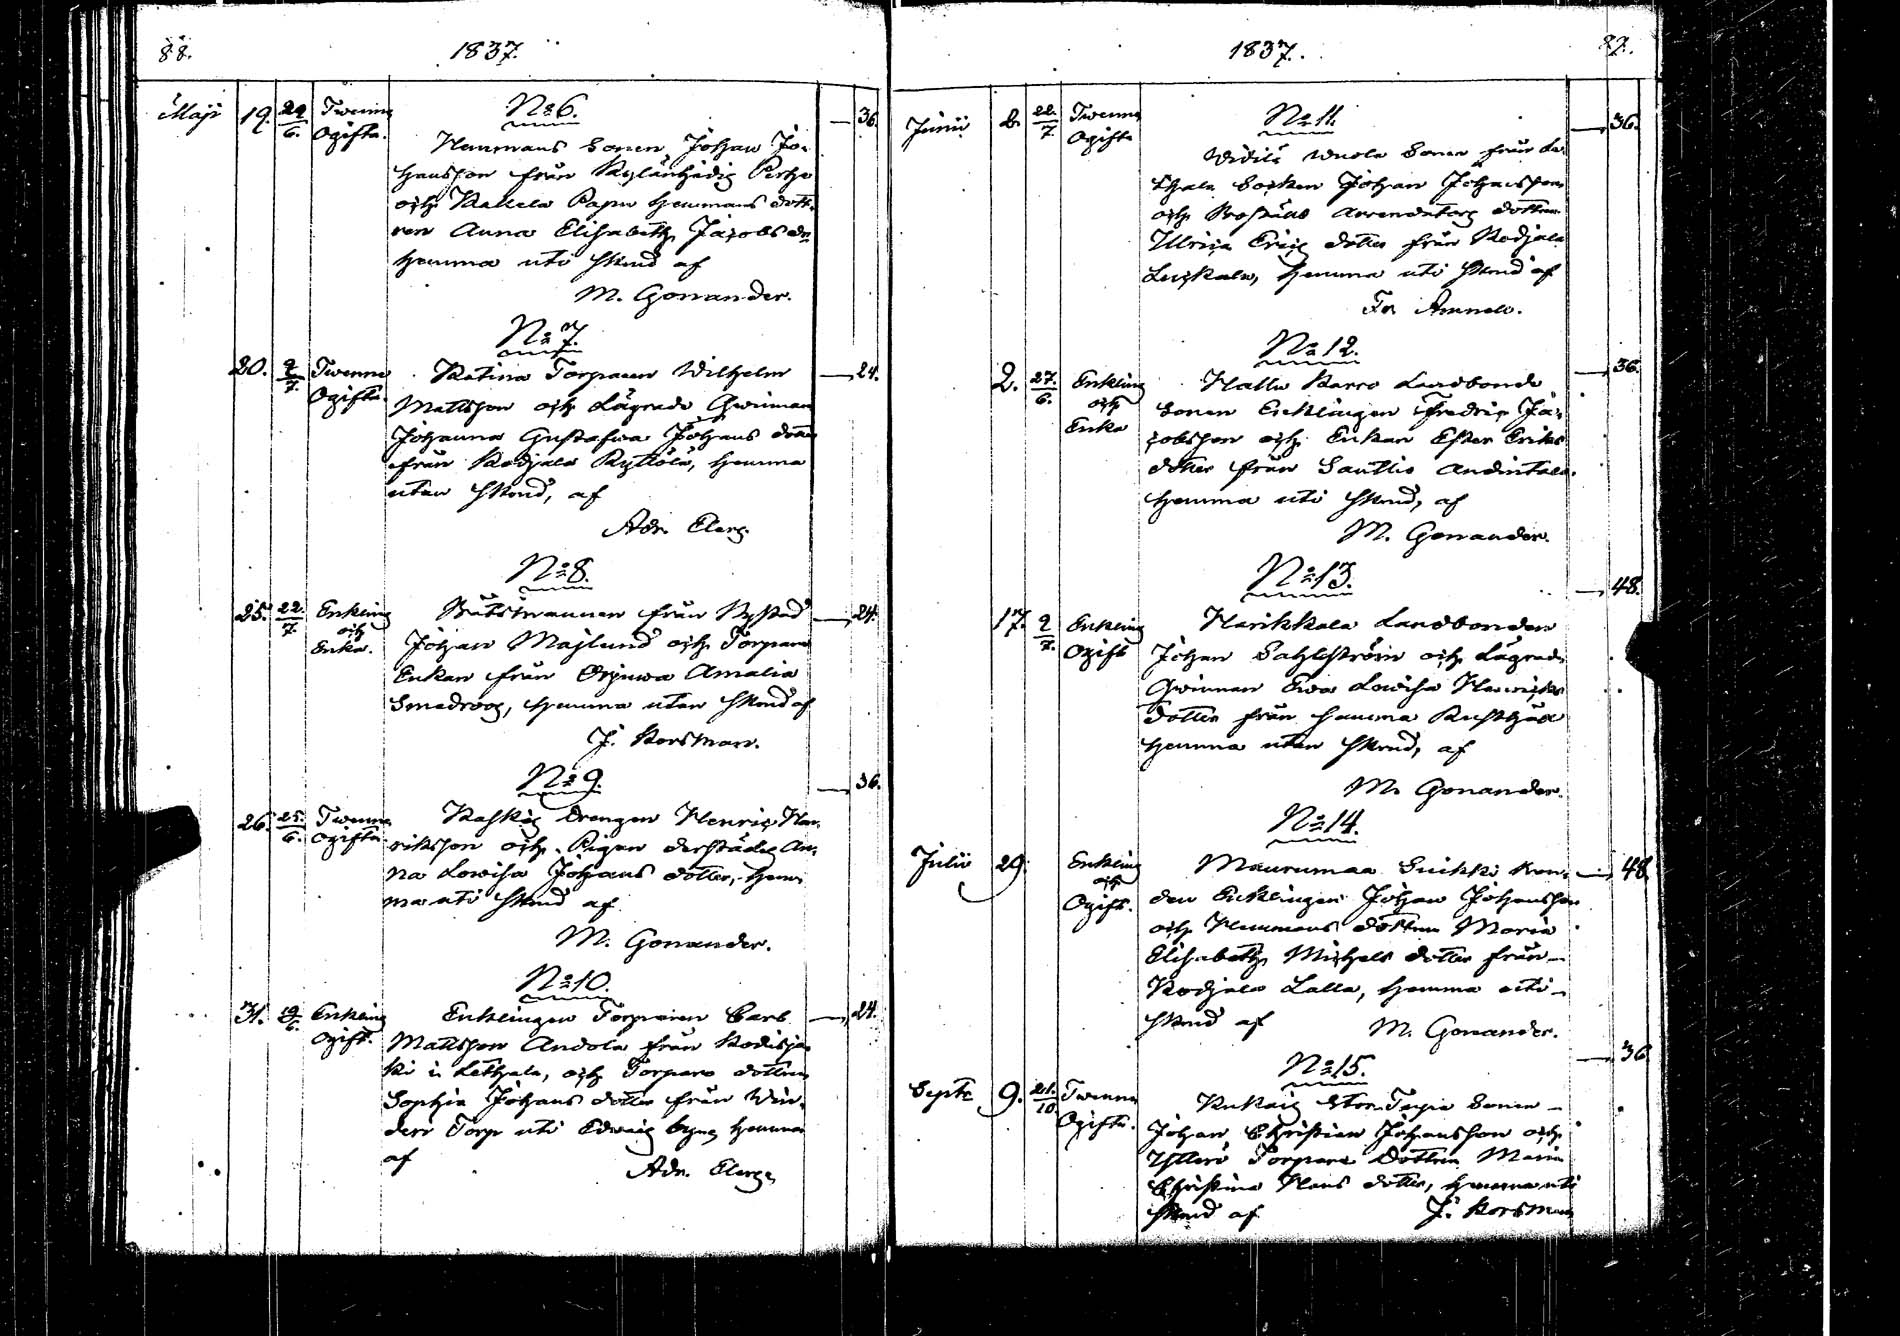 88.
1837.
Maji 19. 22/6. Twenne Ogifta.
No 6.
— 36.
Hemmans Sonen Johan Jo-
hansson från Kylänhidig Perho
och Kallela Papu hemmans dott-
ren Anna Elisabeth Jacobs dr
hemma uti Sknd af
M. Gonander.
No 7.
20. 2/7. Twenne Ogifta.
— 24.
Ratina Torparen Wilhelm
Mattsson och Lägrade Qwinnan
Johanna Gustafwa Johans dotter
från Kodjala Kyttölä, hemma
utan Sknd, af
Adr. Elerg.
No 8.
25. 22./7. Enkling och Enka.
— 24.
Båtsmannen från Nystad
Johan Majlund och Torpare
Enkan från Amalia
hemma utan Sknd af
J. Korsman.
No 9.
— 36.
26. 25./6. Twenne Ogifta.
Drengen Henric Hen-
riksson och Pigan derstädes An-
na Lowisa Johans dotter, hem-
ma uti Sknd af
M. Gonander.
No 10.
31. Enkling Ogift.
— 24.
Enklingen Torparen Carl
Mattsson Andola från Kodisjo-
ki i Lethala, och Torpare dottren
Sophia Johans dotter från Win-
derr Torp uti hemma
af
Adr. Elerg.
1837.
Junii 2. 22./7 Twenne Ogifta
No 11.
— 36.
Sonen från Le-
thala Socken Johan Johansson
och arrendators dottren
Ulrica Eric dotter från Kodjala
Luckala, hemma uti Sknd af
Fr. Ammelo.
No 12.
2. 27./6. Enkling och Enka
— 36.
Halla Karro Landbonde
Sonen Enklingen Fredric Ja-
cobsson och Enkan Ester Eriks
dotter från Santtio
hemma uti Sknd, af
M. Gonander.
No 13.
— 48.
17. 2/7. Enkling Ogift
Harikkala Landbonden
Johan Sahlström och Lägrade
Qwinnan Ewa Lowisa Henrichs
dotter från samma Rusthåll
hemma utan Sknd, af
M. Gonander.
No 14.
Julii 29. Enkling och Ogift.
— 48.
Maurumaa Suikki Bon-
den Enklingen Johan Johansson
och Hemmans dottren Maria
Elisabeth Michels dotter från
Kodjala Lalla, hemma uti
Sknd af M. Gonander.
— 36
No 15.
Septr 9. 21./10. Twenne Ogifta.
Kukaig Stor Sonen
Johan Christian Johansson och
Ytterö Torpare Dottren Maria
Christina Hans dotter, hemma uti
Sknd af J. Korsman